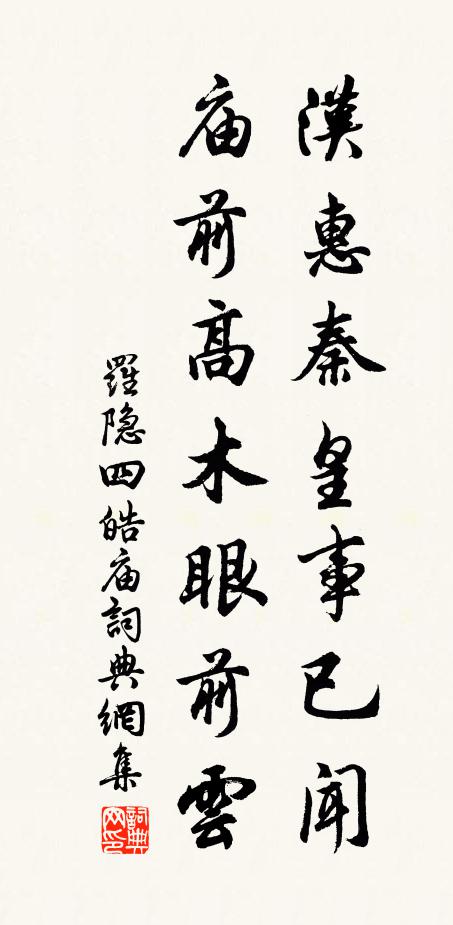 漢惠秦皇事已闻
庙前高木眼前雲
羅隐四皓庙詞典網集
詞典网印